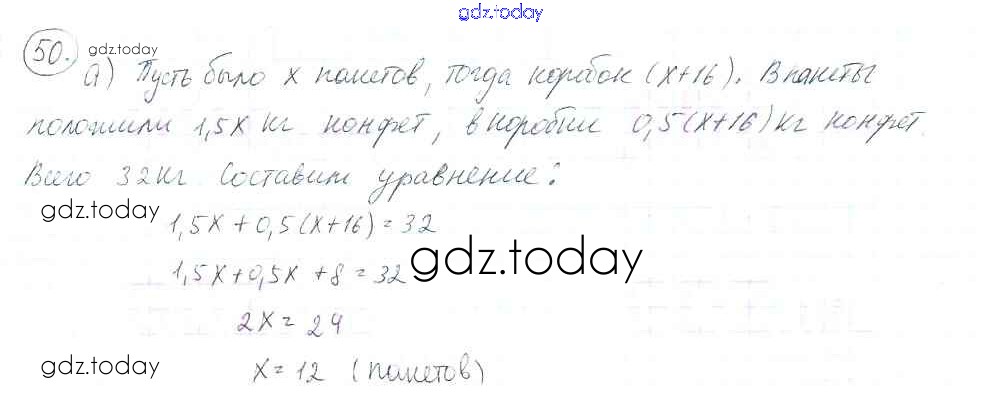 gdz.today
50. gdz.today
а) Пусть было x пакетов, тогда коробок (x+16). В пакеты
положили 1,5x кг конфет, в коробки 0,5(x+16) кг конфет.
Всего 32 кг. Составим уравнение:
gdz.today
1,5x + 0,5(x+16) = 32
1,5x + 0,5x + 8 = 32
gdz.today
2x = 24
gdz.today
x = 12 (пакетов)